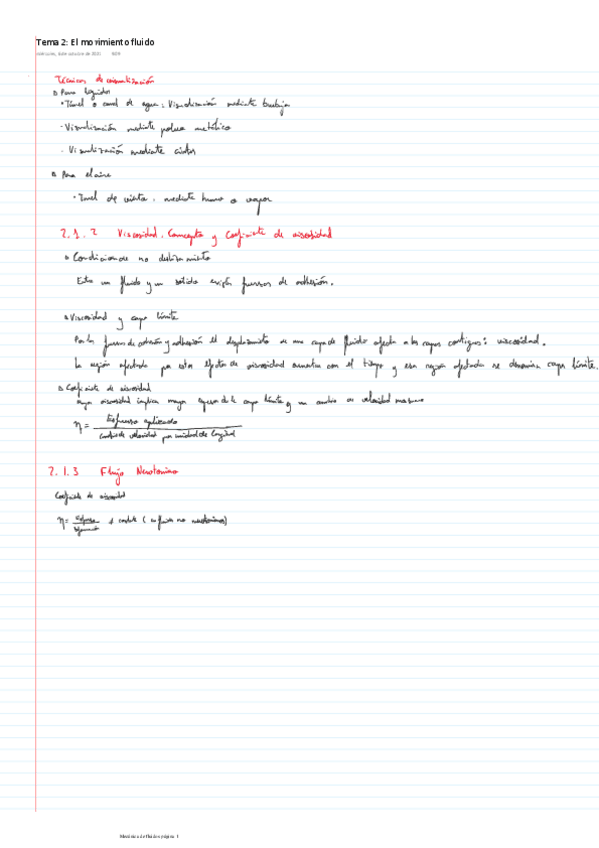 Tema 2: El movimiento fluido
Técnicas de visualización
Para líquidos
• Túnel o canal de agua: Visualización mediante burbujas
- Visualización mediante polvos metálico
- Visualización mediante
Para el aire
• Tunel de viento: mediante humo o vapor
2.1.2 Viscosidad. Concepto y Coeficiente de viscosidad
Condicion de no deslizamiento
Entre un fluido y un sólido existen fuerzas de adhesión.
Viscosidad y capa límite
Por las fuerzas de cohesión y adhesión el desplazamiento de una capa de fluido afecta a las capas contiguas: viscosidad.
La región afectada por estos efectos de viscosidad aumenta con el tiempo y esa región afectada se denomina capa límite.
Coeficiente de viscosidad
mayor viscosidad implica mayor espesor de la capa límite y un cambio de velocidad mas
η = Esfuerzo aplicado
cambio de velocidad por unidad de longitud
2.1.3 Flujo Newtoniano
Coeficiente de viscosidad
η = ≠ (en fluidos no newtonianos)
Mecánica de fluidos página 1